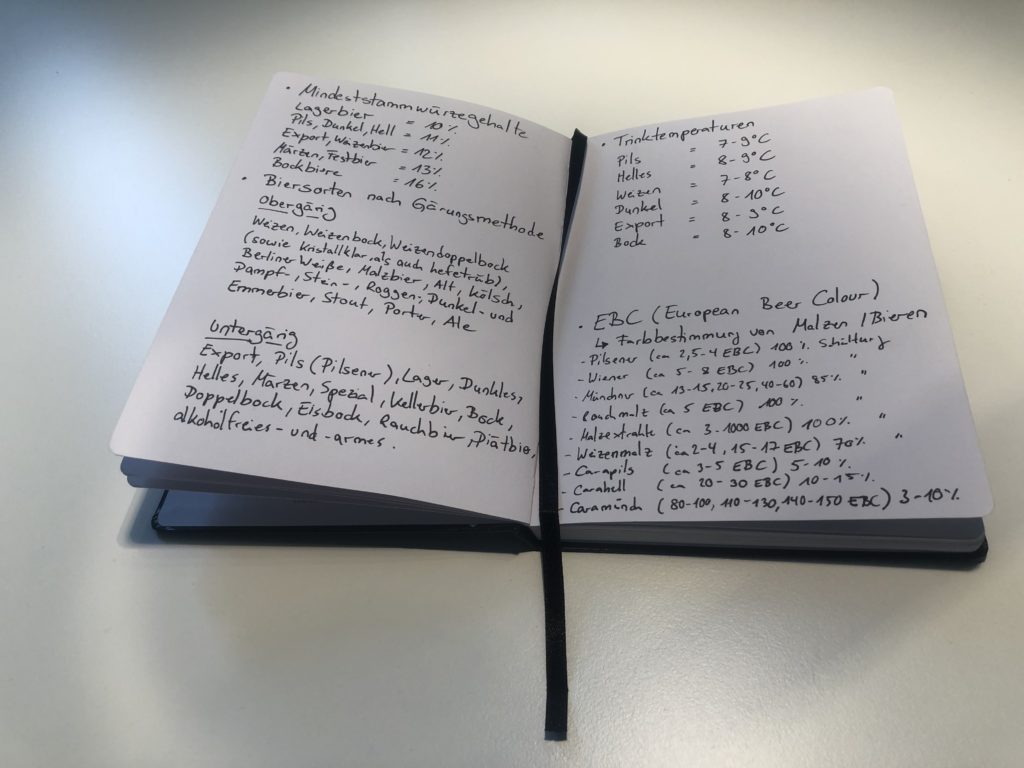 • Mindeststammwürzegehalte
Lagerbier = 10%
Pils, Dunkel, Hell = 11%
Export, Weizenbier = 12%
Märzen, Festbier = 13%
Bockbiere = 16%
• Biersorten nach Gärungsmethode
Obergärig
Weizen, Weizenbock, Weizendoppelbock
(sowie kristallklar, als auch hefetrüb),
Berliner Weiße, Malzbier, Alt, Kölsch,
Dampf-, Stein-, Roggen-, Dunkel- und
Emmerbier, Stout, Porter, Ale
Untergärig
Export, Pils (Pilsener), Lager, Dunkles,
Helles, Märzen, Spezial, Kellerbier, Bock,
Doppelbock, Eisbock, Rauchbier, Diätbier,
alkoholfreies- und -armes.
• Trinktemperaturen
Pils = 7-9°C
Helles = 8-9°C
Weizen = 7-8°C
Dunkel = 8-10°C
Export = 8-9°C
Bock = 8-10°C
• EBC (European Beer Colour)
↳ Farbbestimmung von Malzen / Bieren
- Pilsener (ca 2,5-4 EBC) 100% Schüttung
- Wiener (ca 5-8 EBC) 100% "
- Münchner (ca 13-15, 20-25, 40-60) 85% "
- Rauchmalz (ca 5 EBC) 100% "
- Malzextrakte (ca 3-1000 EBC) 100% "
- Weizenmalz (ca 2-4, 15-17 EBC) 70% "
- Carapils (ca 3-5 EBC) 5-10%
- Carahell (ca 20-30 EBC) 10-15%
- Caramünch (80-100, 110-130, 140-150 EBC) 3-10%